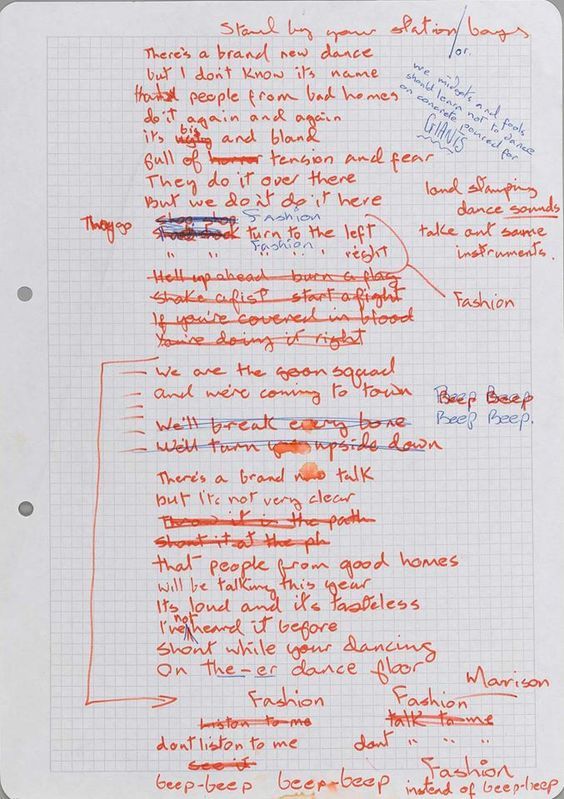 Stand by your station boys
There's a brand new dance
but I don't know it's name
That people from bad homes
do it again and again
its big and bland
full of horror tension and fear
They do it over there
But we don't do it here
Fashion
turn to the left
Fashion
" " " " right
Hell up ahead burn a flag
Shake a fist start a fight
If you're covered in blood
You're doing it right
We are the goon squad
and we're coming to town
We'll break every bone
We'll turn you upside down
There's a brand new talk
but its not very clear
Throw it in the path
shout it at the ph
that people from good homes
will be talking this year
Its loud and it's tasteless
I've not heard it before
Shout while your dancing
On the-er dance floor
Fashion Fashion
Listen to me talk to me
dont listen to me dont " " "
see it
beep-beep beep-beep
or.
we midgets and fools
should learn not to dance
on concrete poured for
GIANTS
land stamping
dance sounds
take out same
instruments.
Fashion
Beep Beep
Beep Beep.
Fashion
instead of beep-beep